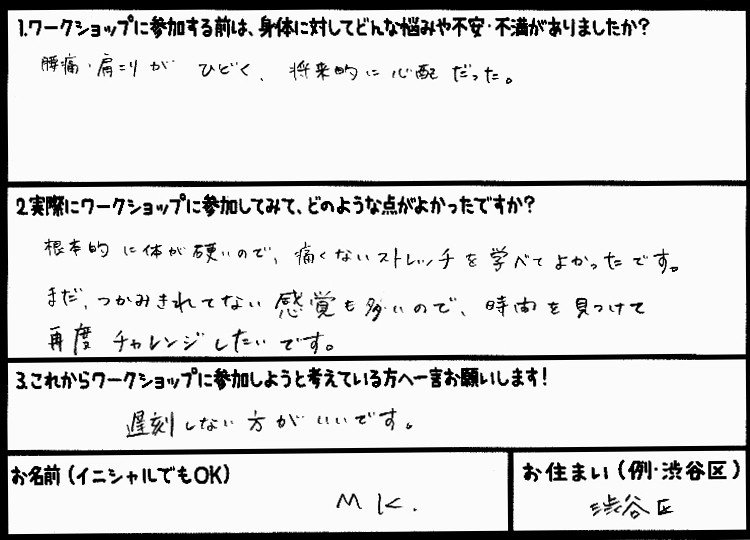 1.ワークショップに参加する前は、身体に対してどんな悩みや不安・不満がありましたか?
腰痛・肩こりが ひどく、将来的に心配だった。
2.実際にワークショップに参加してみて、どのような点がよかったですか?
根本的に体が硬いので、痛くないストレッチを学べてよかったです。
まだ、つかみきれてない感覚も多いので、時間を見つけて
再度チャレンジしたいです。
3.これからワークショップに参加しようと考えている方へ一言お願いします!
遅刻しない方がいいです。
お名前(イニシャルでもOK)
M K.
お住まい(例・渋谷区)
渋谷区